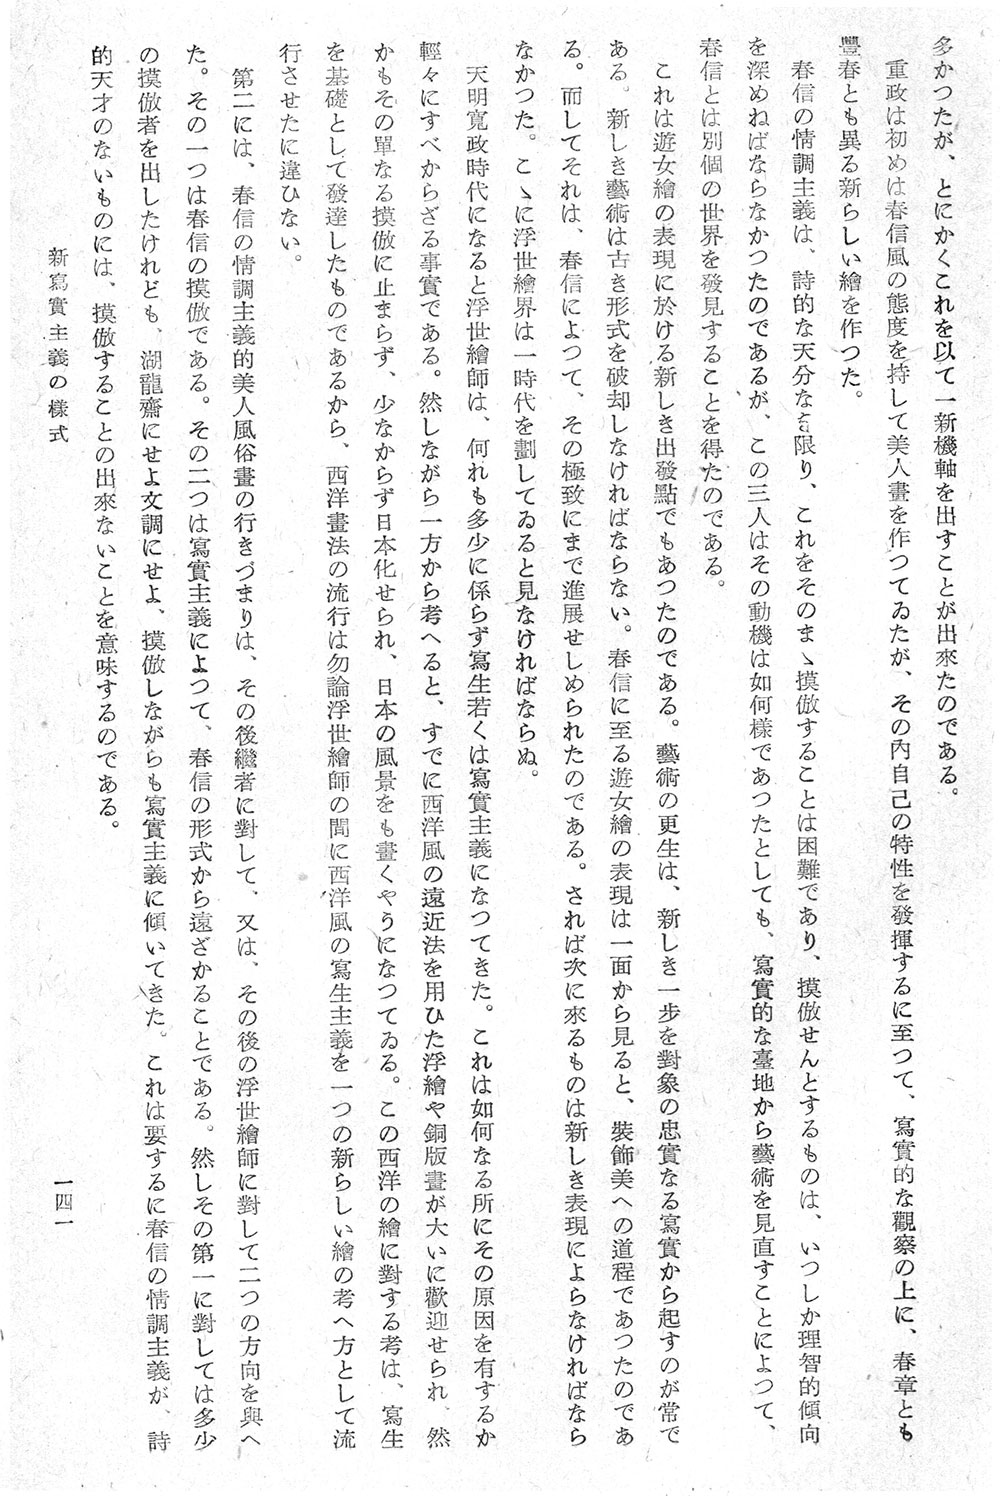 多かつたが、とにかくこれを以て一新機軸を出すことが出來たのである。
重政は初めは春信風の態度を持して美人畫を作つてゐたが、その內自己の特性を發揮するに至つて、寫實的な觀察の上に、春章とも
豐春とも異る新らしい繪を作つた。
春信の情調主義は、詩的な天分なき限り、これをそのまゝ摸倣することは困難であり、摸倣せんとするものは、いつしか理智的傾向
を深めねばならなかつたのであるが、この三人はその動機は如何樣であつたとしても、寫實的な臺地から藝術を見直すことによつて、
春信とは別個の世界を發見することを得たのである。
これは遊女繪の表現に於ける新しき出發點でもあつたのである。藝術の更生は、新しき一步を對象の忠實なる寫實から起すのが常で
ある。新しき藝術は古き形式を破却しなければならない。春信に至る遊女繪の表現は一面から見ると、裝飾美への道程であつたのであ
る。而してそれは、春信によつて、その極致にまで進展せしめられたのである。されば次に來るものは新しき表現によらなければなら
なかつた。こゝに浮世繪界は一時代を劃してゐると見なければならぬ。
天明寬政時代になると浮世繪師は、何れも多少に係らず寫生若くは寫實主義になつてきた。これは如何なる所にその原因を有するか
輕々にすべからざる事實である。然しながら一方から考へると、すでに西洋風の遠近法を用ひた浮繪や銅版畫が大いに歡迎せられ、然
かもその單なる摸倣に止まらず、少なからず日本化せられ、日本の風景をも畫くやうになつてゐる。この西洋の繪に對する考は、寫生
を基礎として發達したものであるから、西洋畫法の流行は勿論浮世繪師の間に西洋風の寫生主義を一つの新らしい繪の考へ方として流
行させたに違ひない。
第二には、春信の情調主義的美人風俗畫の行きづまりは、その後繼者に對して、又は、その後の浮世繪師に對して二つの方向を與へ
た。その一つは春信の摸倣である。その二つは寫實主義によつて、春信の形式から遠ざかることである。然しその第一に對しては多少
の摸倣者を出したけれども、湖龍齋にせよ文調にせよ、摸倣しながらも寫實主義に傾いてきた。これは要するに春信の情調主義が、詩
的天才のないものには、摸倣することの出來ないことを意味するのである。
新寫實主義の樣式
一四一